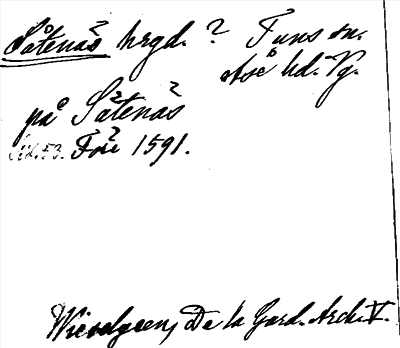 Såtenäs hrgd. ? Tuns sn.
Åse hd. Vg.
på Såtenäs
Sid. 53. Före 1591.
Wieselgren, De la Gard. Arch. V.